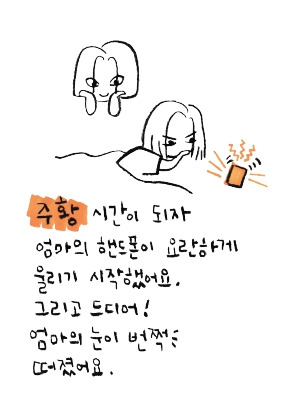 주황 시간이 되자
엄마의 핸드폰이 요란하게
울리기 시작했어요.
그리고 드디어!
엄마의 눈이 번쩍!
떠졌어요.